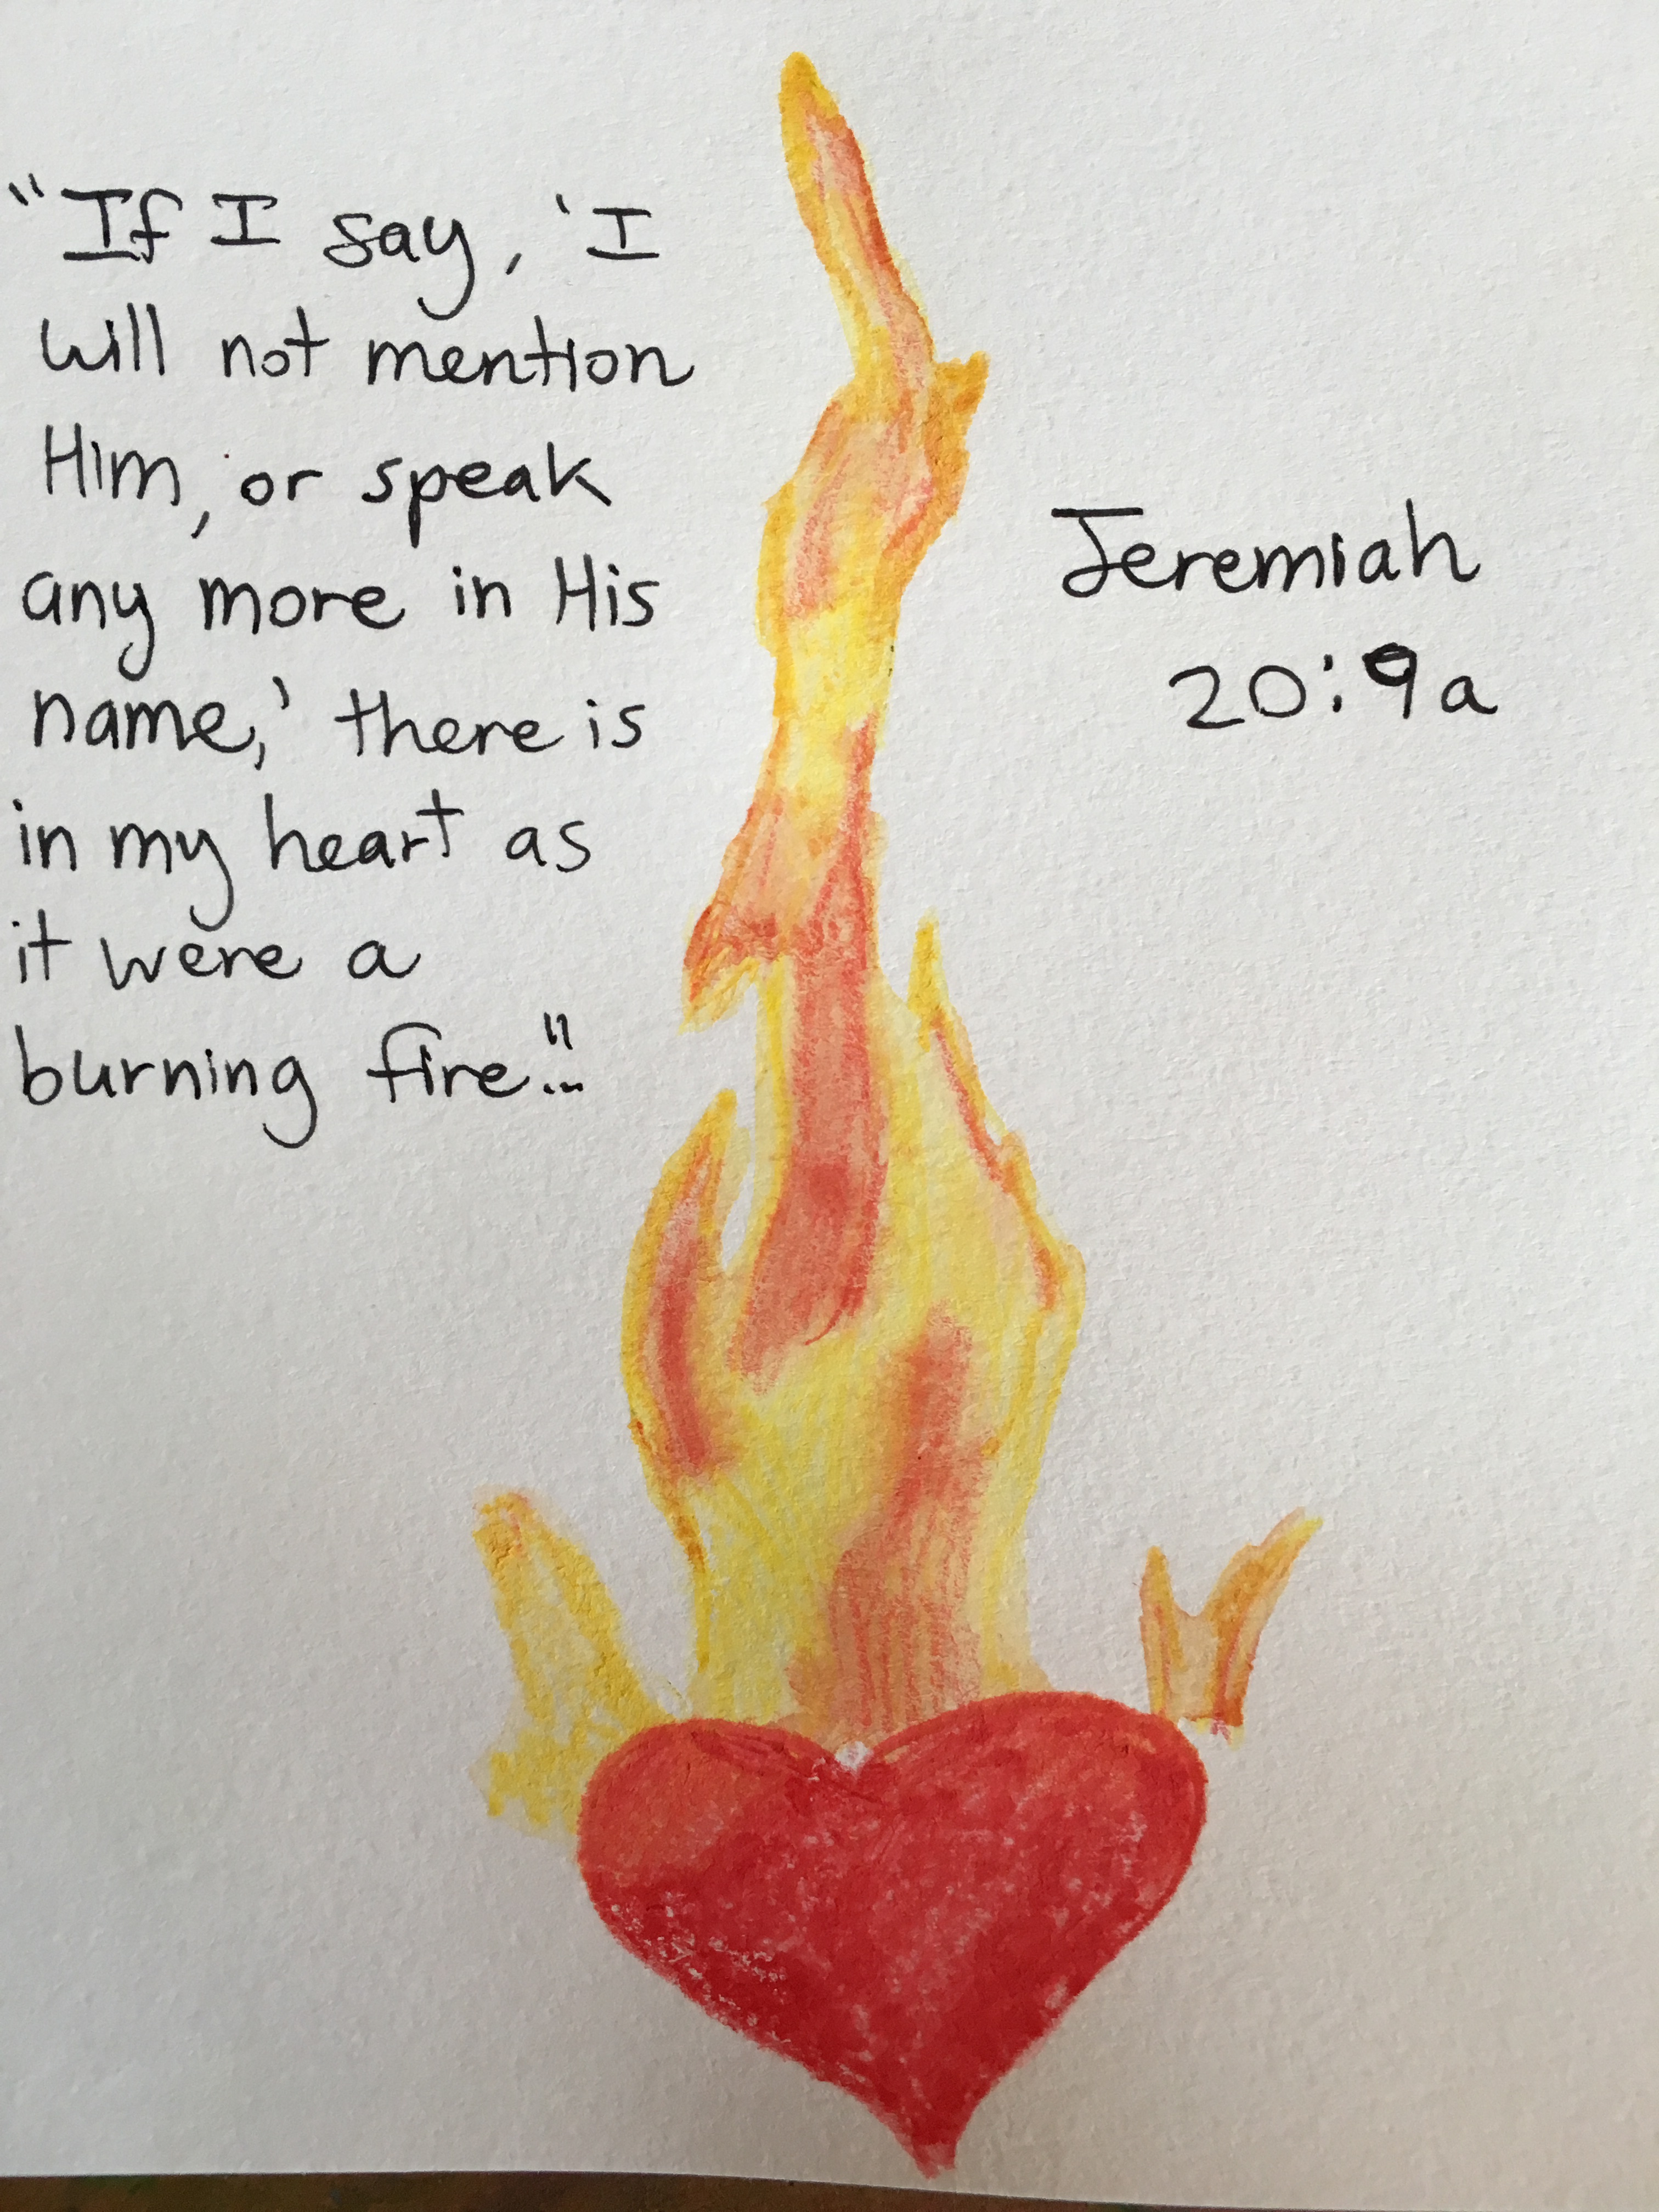 "If I say, 'I
will not mention
Him, or speak
any more in His
name,' there is
in my heart as
it were a
burning fire..."
Jeremiah
20:9a